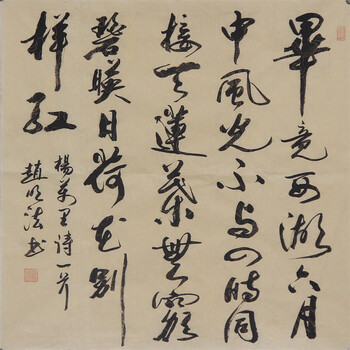 畢竟西湖六月
中風光不与四時同
接天蓮葉無窮
碧暎日荷花别
樣紅
楊萬里詩一首
趙明法书